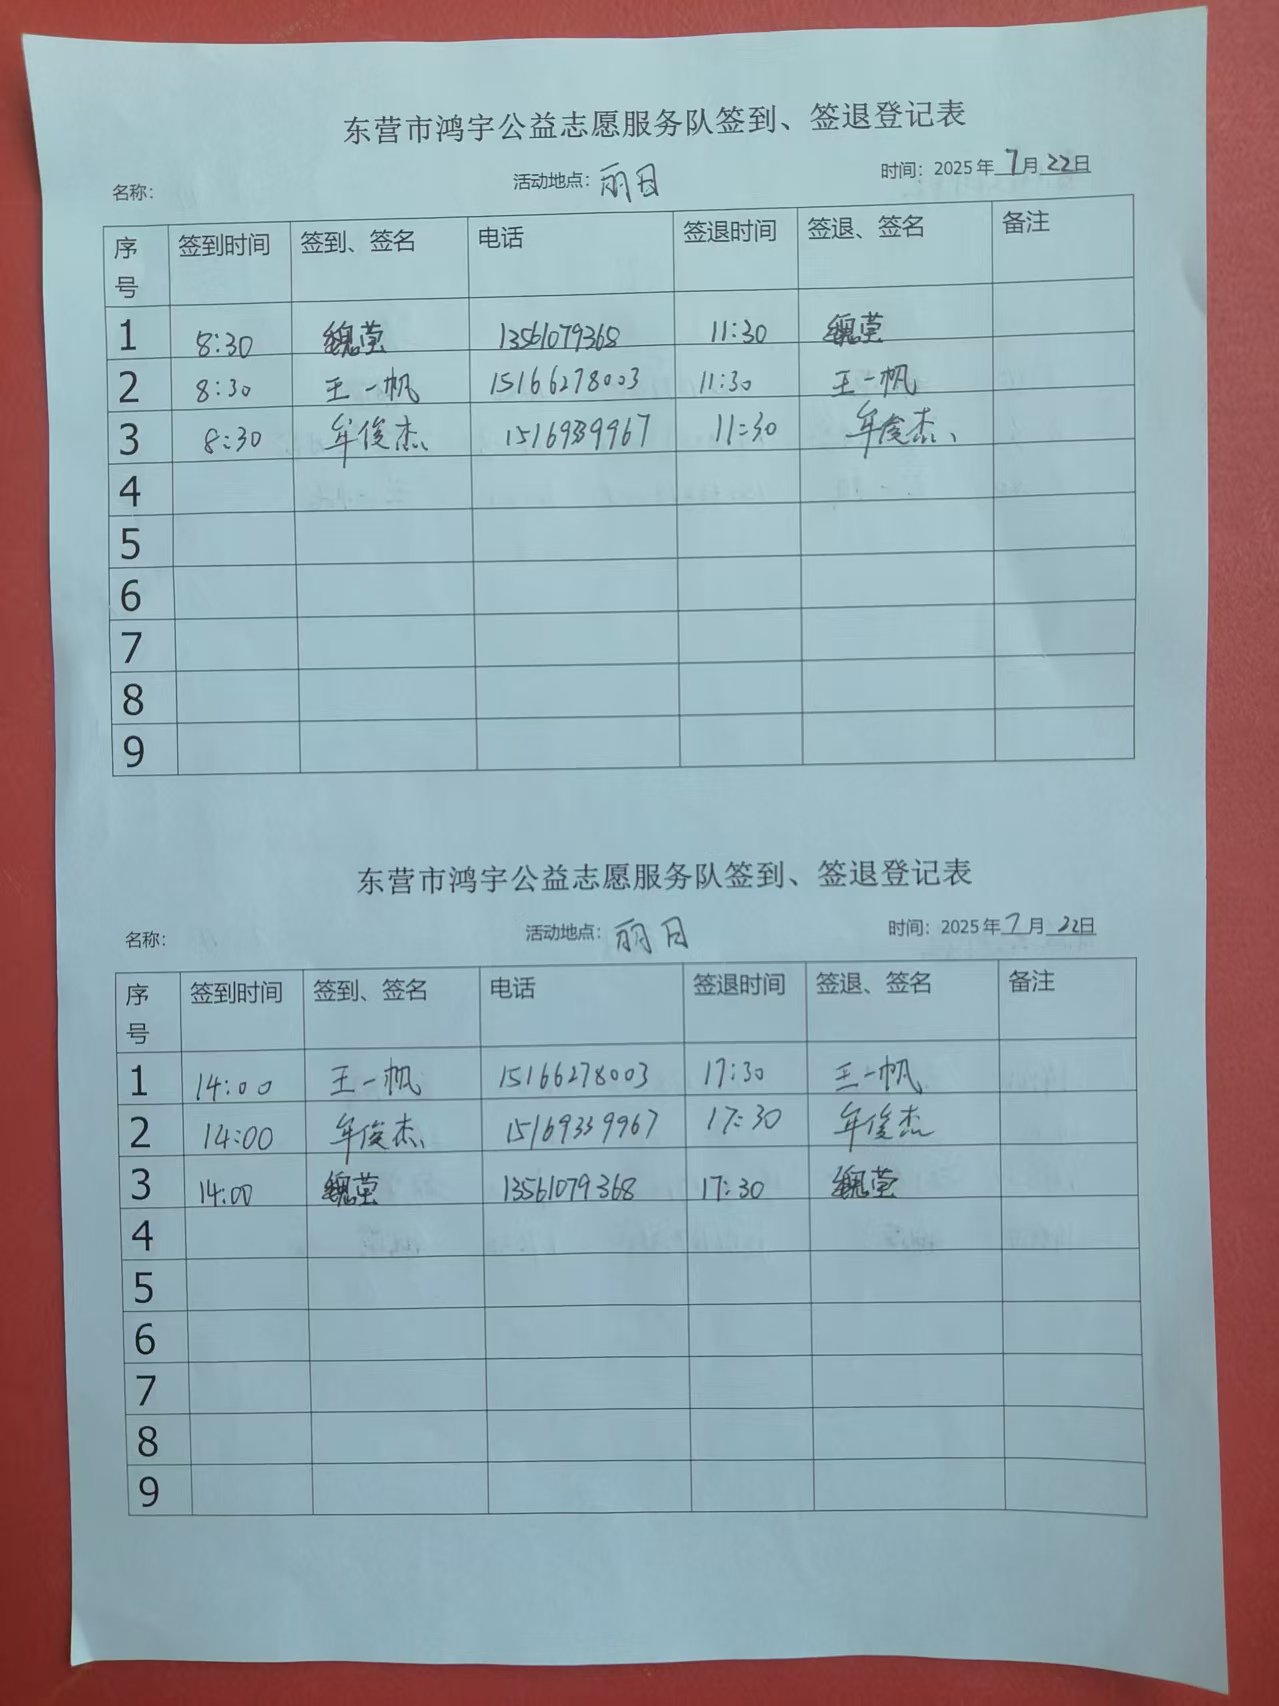 东营市鸿宇公益志愿服务队签到、签退登记表
名称： 活动地点：丽日 时间：2025年7月22日
序号 签到时间 签到、签名 电话 签退时间 签退、签名 备注
1 8:30 魏莹 13561079368 11:30 魏莹
2 8:30 王一帆 15166278003 11:30 王一帆
3 8:30 牟俊杰 15169339967 11:30 牟俊杰
4
5
6
7
8
9
东营市鸿宇公益志愿服务队签到、签退登记表
名称： 活动地点：丽日 时间：2025年7月22日
序号 签到时间 签到、签名 电话 签退时间 签退、签名 备注
1 14:00 王一帆 15166278003 17:30 王一帆
2 14:00 牟俊杰 15169339967 17:30 牟俊杰
3 14:00 魏莹 13561079368 17:30 魏莹
4
5
6
7
8
9